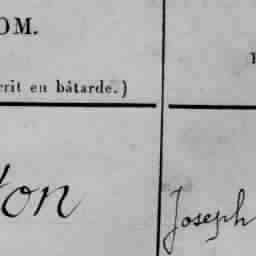 OM.
crit en bâtarde.)
ton
Joseph